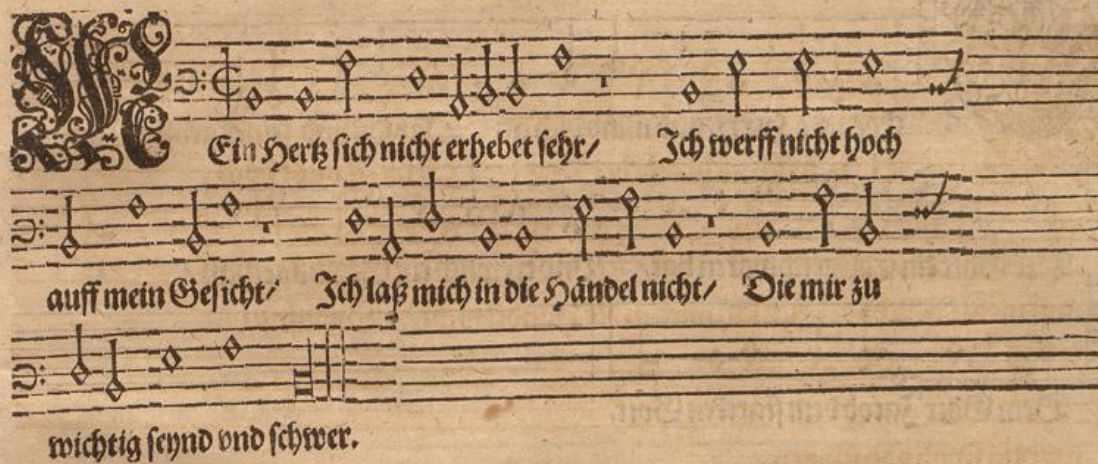 MEin Hertz sich nicht erhebet sehr/ Ich werff nicht hoch
auff mein Gesicht/ Ich laß mich in die Händel nicht/ Die mir zu
wichtig seynd vnd schwer.